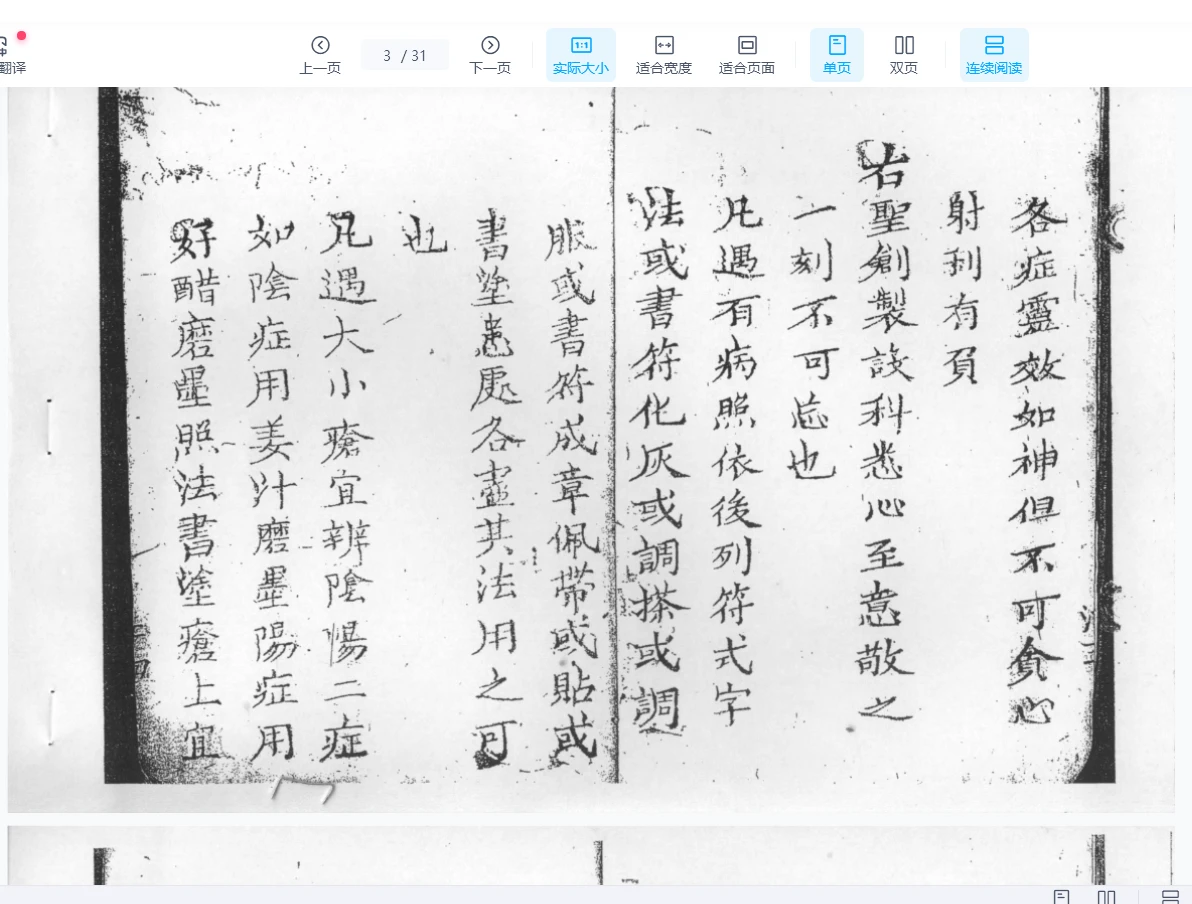 翻译
上一页
3 / 31
下一页
1:1
实际大小
适合宽度
适合页面
单页
双页
连续阅读
各症靈效如神但不可貪心
射利有負
右聖創製設科悉心至意敬之
一刻不可忽也
凡遇有病照依後列符式字
法或書符化灰或調搽或調
服或書符成章佩帶或貼或
書塗患處各盡其法用之可
也
凡遇大小瘡宜辨陰惕二症
如陰症用姜汁磨墨陽症用
好醋磨墨照法書塗瘡上宜